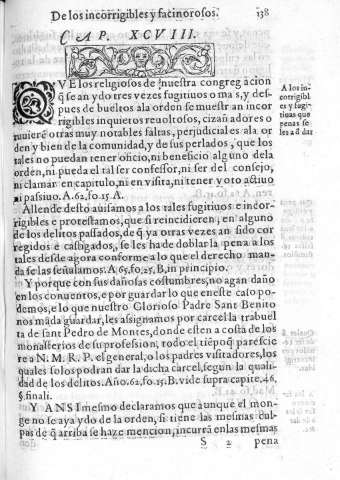 De los incorrigibles y facinorosos. 138
CAP. XCVIII.
QVE los religiosos de nuestra congregacion
q̃ se an ydo tres vezes fugitiuos o mas, y des-
pues de bueltos ala orden se muestran incor
rigibles inquietos reuoltosos, cizañadores o
uuierẽ otras muy notables faltas, perjudiciales ala or
den y bien de la comunidad, y de sus perlados, que los
tales no puedan tener oficio, ni beneficio alguno dela
orden, ni pueda el tal ser confessor, ni ser del consejo,
ni clamar en capitulo, ni en visita, ni tener voto actiuo
ni passiuo. A. 62, fo. 15. A.
A los in-
corrigibl
es y fugi-
tiuos que
penas se
les a d̃ dar
Allende desto auisamos a los tales fugitiuos e incor-
rigibles e protestamos, que si reincidieren, en alguno
de los delitos passados, de q̃ ya otras vezes an sido cor
regidos e castigados, se les ha de doblar la pena a los
tales desde agora conforme a lo que el derecho man-
da se las señalamos. A 65, fo. 25, B, in principio.
Y porque con sus dañosas costumbres, no agan daño
en los conuentos, e por guardar lo que en este caso po-
demos, e lo que nuestro Glorioso Padre Sant Benito
nos māda guardar, les assignamos por carcel la trabuel
ta de Sant Pedro de Montes, donde esten a costa de los
monasterios de su profession, todo el tiēpo q̃ paresçie
re a N. M. R. P. el general, o los padres visitadores, los
quales solos podran dar la dicha carcel, segun la quali
dad de los delitos. Año. 62, fo. 15. B. vide supra capite. 46,
§. finali.
Y ANSI mesmo declaramos que aunque el mon-
ge no se aya ydo de la orden, si tiene las mesmas cul-
pas de q̃ arriba se haze mencion, incurrā en las mesmas
S 2 pena